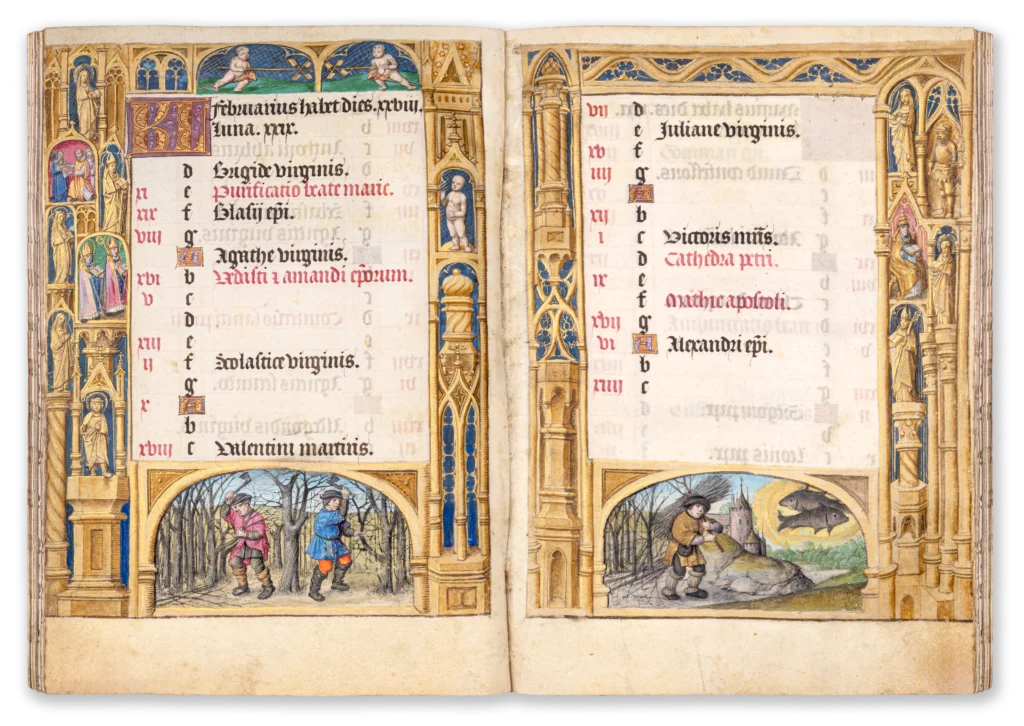 KL Februarius habet dies. xxviij.
luna. xxix.
d Brigide virginis.
xi e Purificatio beate marie.
xix f Blasij ep̄i.
viij g
A Agathe virginis.
xvi b Vedasti ⁊ amandi ep̄orum.
v c
d
xiij e
ij f Scolastice virginis.
g
x A
b
xviij c Valentini martiris.
vij d
e Juliane virginis.
xv f
iiij g
A
xij b
i c Victoris mr̄is.
d Cathedra petri.
ix e
f Mathie apostoli.
xvij g
vi A Alexandri ep̄i.
b
xiiij c